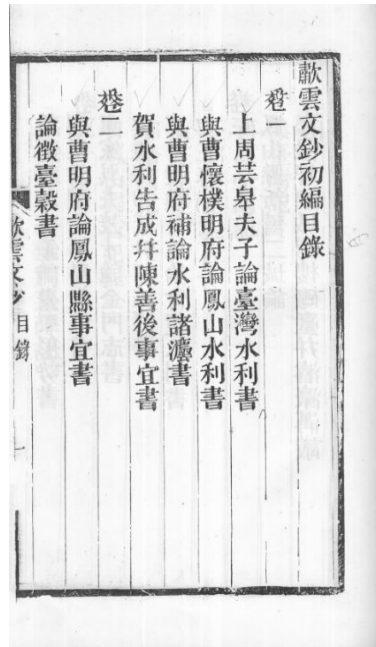 歗雲文鈔初編目錄
卷一
上周芸皋夫子論臺灣水利書
與曹懷樸明府論鳳山水利書
與曹明府補論水利諸灋書
賀水利告成幷陳善後事宜書
卷二
與曹明府論鳳山縣事宜書
論徵臺穀書
歗雲文鈔 目錄 一